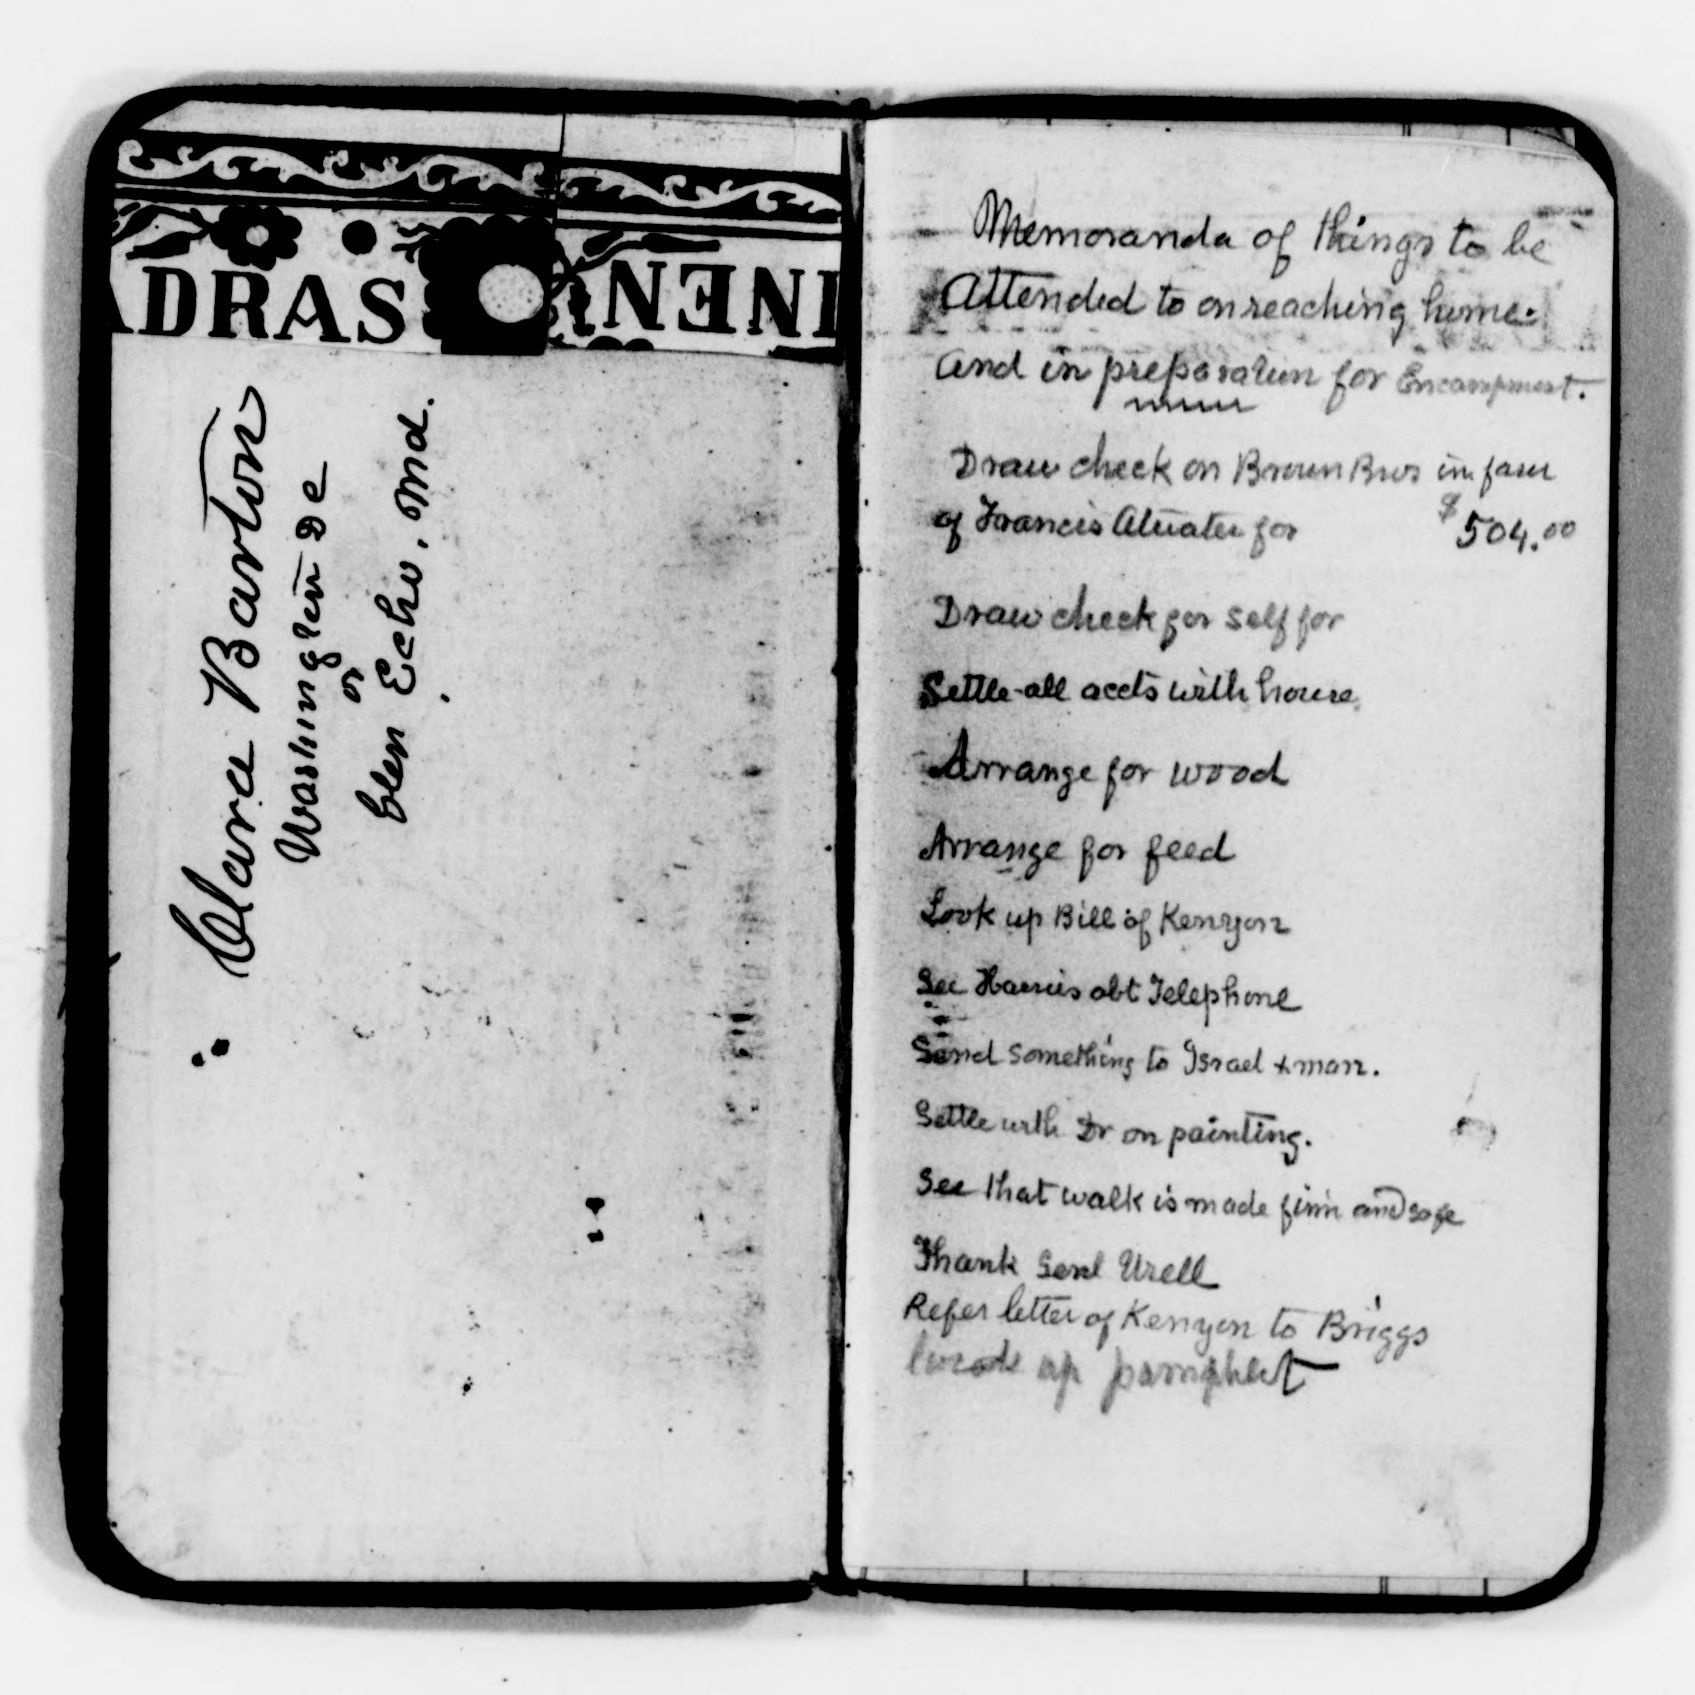 ADRAS
INEN
Clara Barton
Washington DC
or
Glen Echo, Md.
Memoranda of things to be
Attended to on reaching home.
and in preparation for Encampment.
Draw check on Brown Bros in favr
of Francis Atwater for $504.00
Draw check for self for
Settle all accts with house
Arrange for wood
Arrange for feed
Look up Bill of Kenyon
See Harris abt Telephone
Send something to Israel & man.
Settle with Dr on painting.
See that walk is made firm and safe
Thank Genl Urell
Refer letter of Kenyon to Briggs
up pamphlet